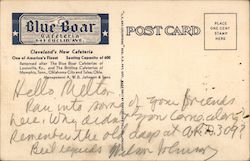 Blue Boar
Cafeteria
Cleveland's New Cafeteria
One of America's Finest Seating Capacity of 600
Patterned after The Blue Boar Cafeterias of
Louisville, Ky., and The Britling Cafeterias of
Memphis, Tenn., Oklahoma City and Tulsa, Okla.
Management A. W. B. Johnson & Sons
POST CARD
PLACE
ONE CENT
STAMP
HERE
Hello
Ran into some of your friends
here. Why didn't you come along
Remember the old days at
Best regards Johnson